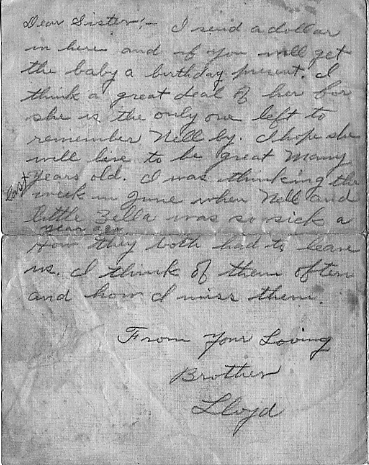 Dear Sister:-  I send a dollar
in here and if you will get
the baby a birthday present. I
think a great deal of her for
she is the only one left to
remember Nell by. I hope she
will live to be great many
years old. I was thinking the
last
week in June when Nell and
little Zella was so sick a
year ago
How they both had to leave
us. I think of them often
and how I miss them.
From Your Loving
Brother
Lloyd